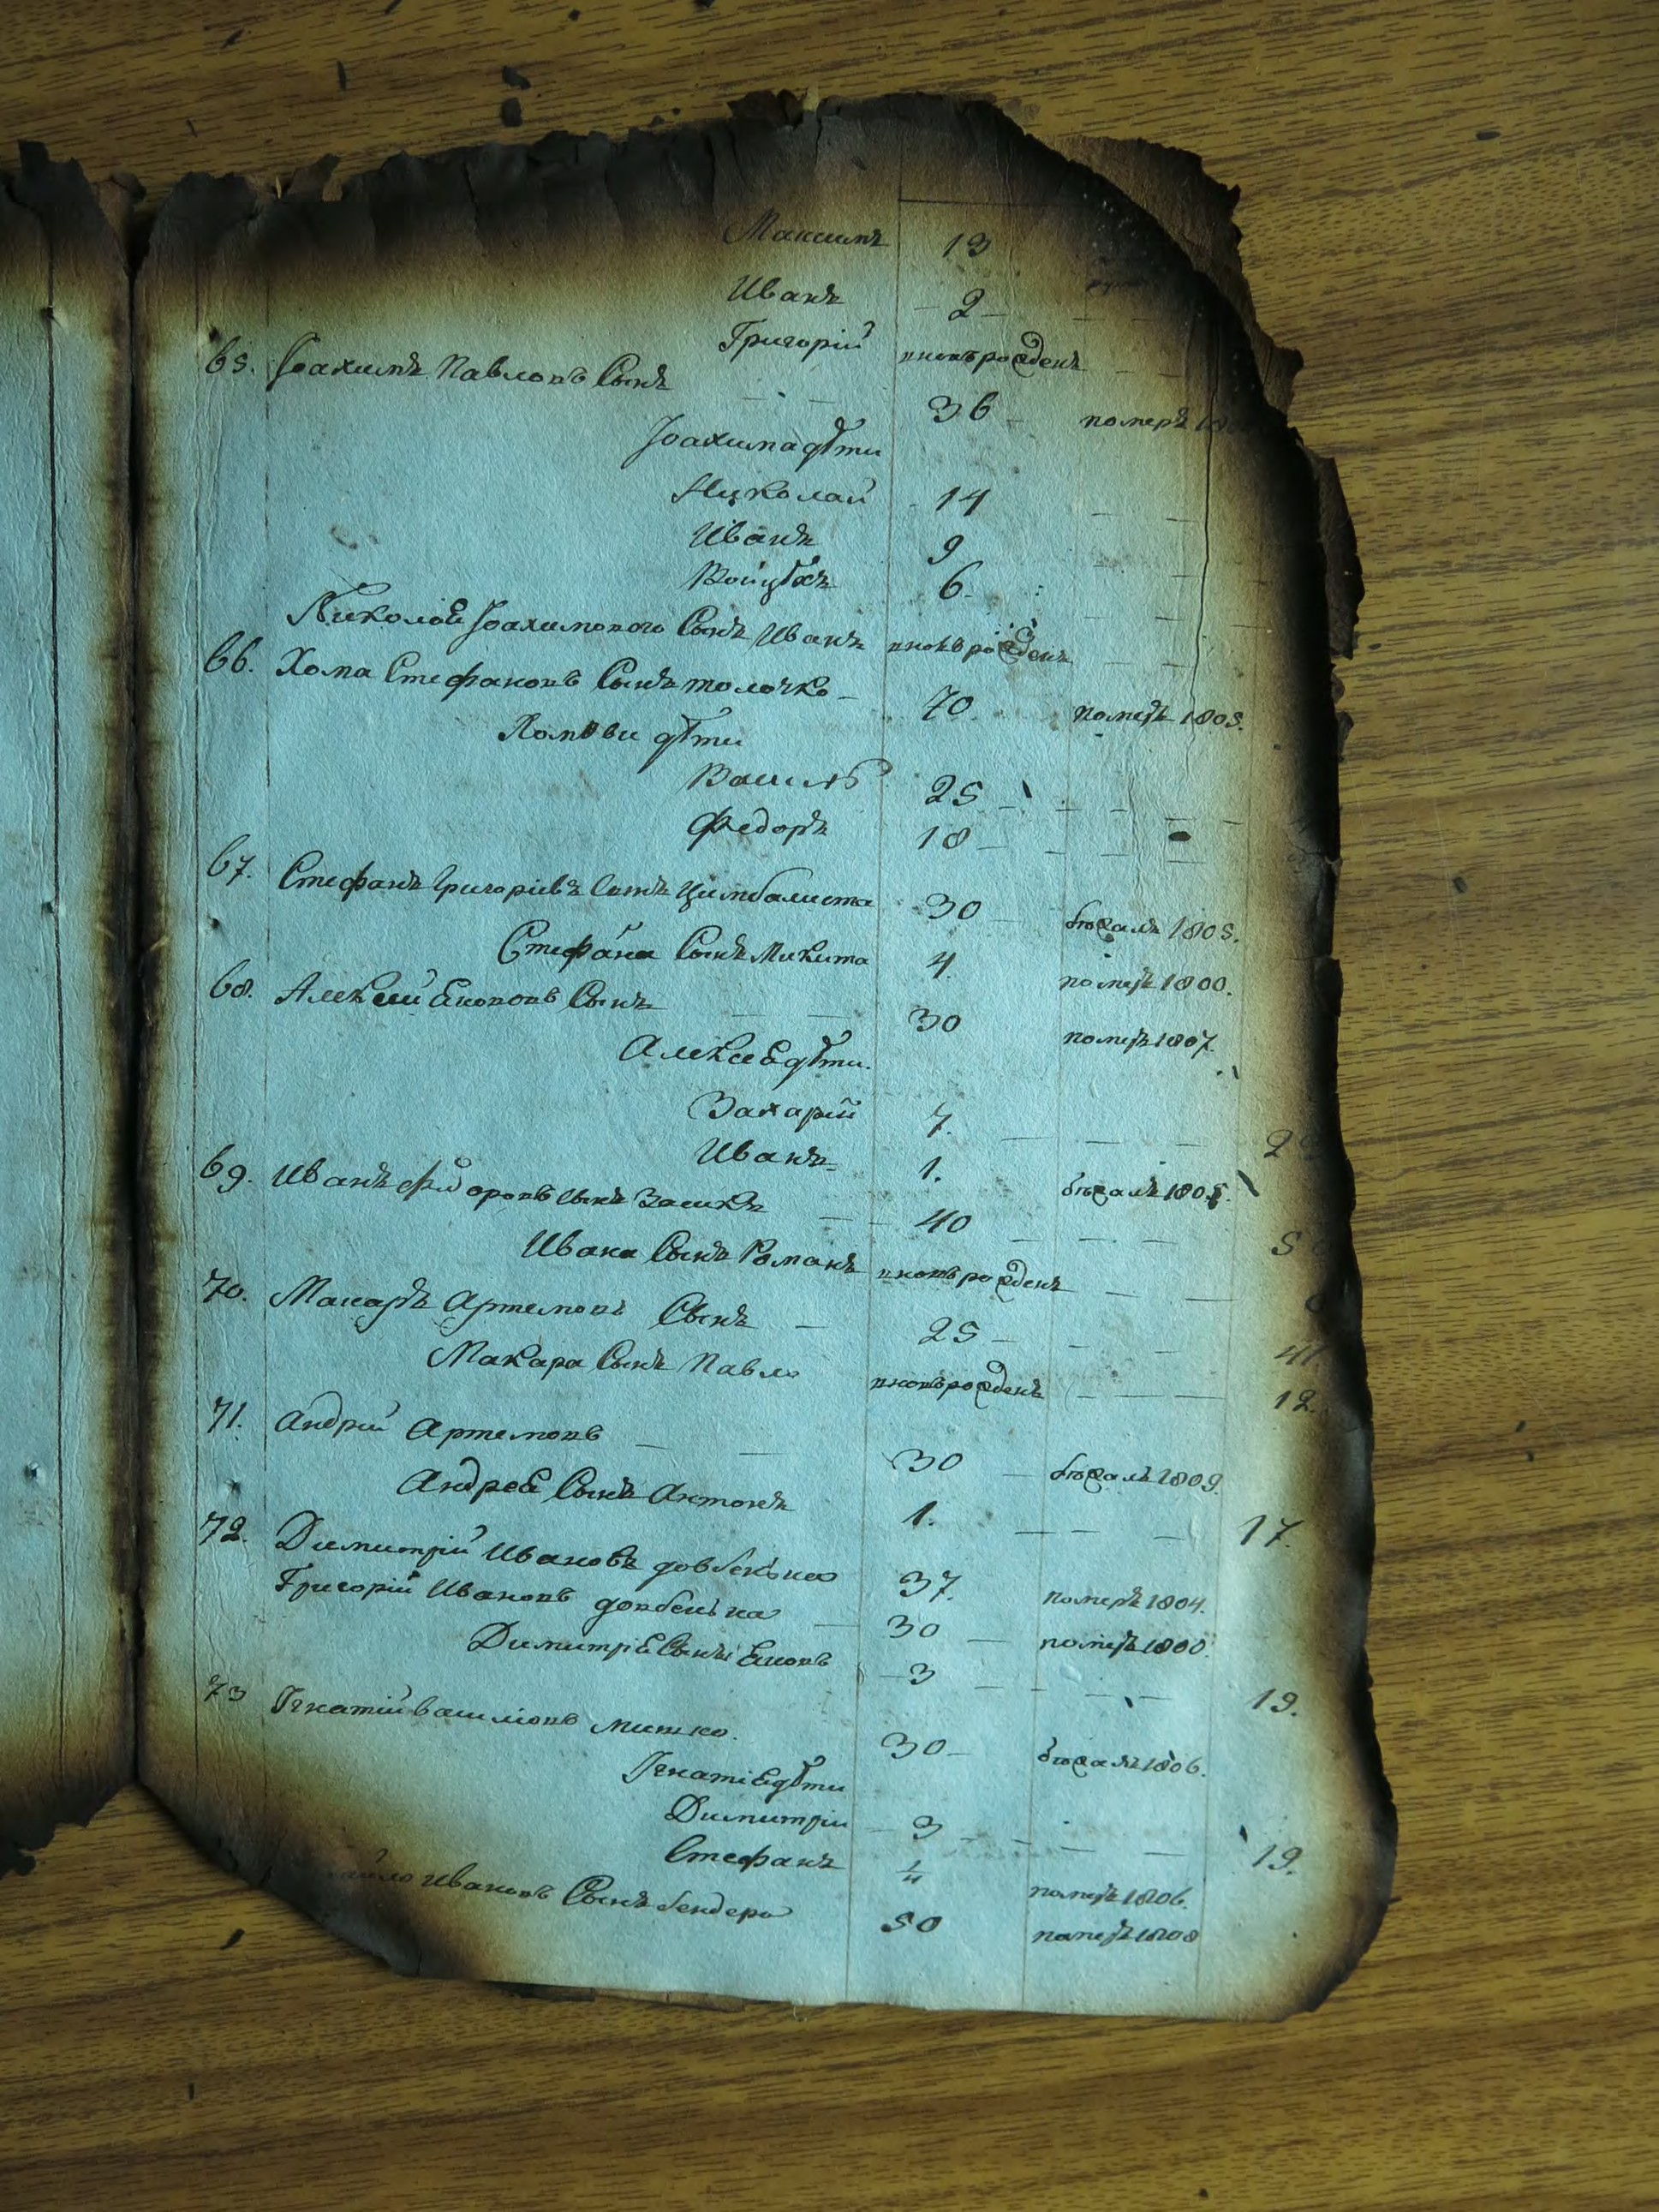 Максимъ 13
Иванъ 2
Григорій вновъ рожденъ
65. Іоахимъ Павловъ Сынъ 36 померъ
Іоахима дѣти
Николай 14
Иванъ 9
Войцѣхъ 6
Николая Іоахимового Сынъ Иванъ вновъ рожденъ
66. Хома Стефановъ Сынъ толочко 70. померъ 1805.
Хомови дѣти
Василь 25
Федоръ 18
67. Стефанъ Григоріевъ Сынъ Цимбалиста 30 бѣжалъ 1805.
Стефана Сынъ Микита 4. померъ 1800.
68. Алексій Сынъ 30 померъ 1807.
Алексея дѣти.
Захарій 7. 2
Иванъ 1. бѣжалъ 1805.
69. Иванъ Федоровъ Сынъ 40 5
Ивана Сынъ Романъ вновъ рожденъ
70. Макаръ Артемовъ Сынъ 25 41
Макара Сынъ Павло вновъ рожденъ 12.
71. Андрій Артемовъ 30 бѣжалъ 1809.
Андрея Сынъ Антонъ 1. 17.
72. Димитрій Ивановъ довбенька 37. померъ 1804.
Григорій Ивановъ довбенька 30 померъ 1800.
Димитрія Сынъ 3 19.
73 Игнатій Василіовъ Митко. 30 бѣжалъ 1806.
Игнатія дѣти
Димитрій 3 19.
Стефанъ ¼ померъ 1806.
Ивановъ Сынъ бендера 50 померъ 1808